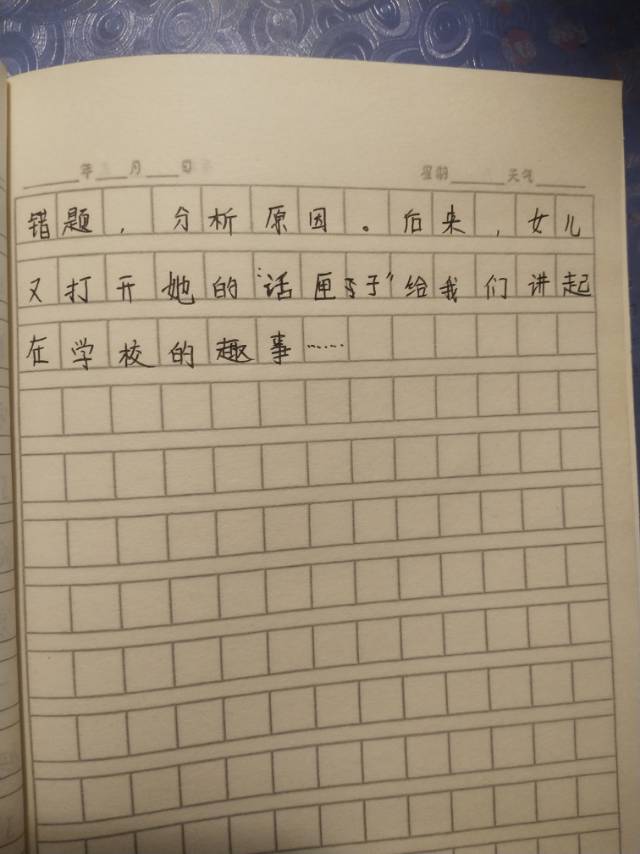 年 月 日 星期 天气
错题，分析原因。后来，女儿
又打开她的“话匣子”给我们讲起
在学校的趣事……